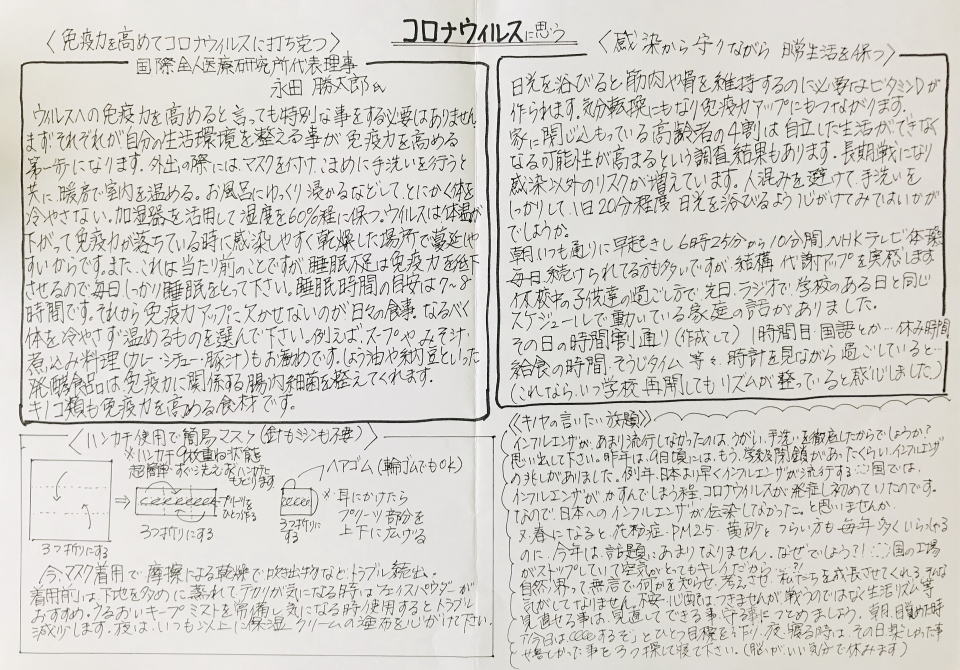 コロナウィルスに思う
〈免疫力を高めてコロナウィルスに打ち克つ〉
国際全人医療研究所代表理事
永田 勝太郎氏
ウィルスへの免疫力を高めると言っても特別な事をする必要はありません
まず、それぞれが自分の生活環境を整える事が免疫力を高める
第一歩になります。外出の際には、マスクを付け、こまめに手洗いを行うと
共に、暖房で室内を温める。お風呂にゆっくり浸かるなどして、とにかく体を
冷やさない。加湿器を活用して湿度を60%程に保つ。ウィルスは体温が
下がって免疫力が落ちている時に感染しやすく乾燥した場所で蔓延しや
すいからです。また、これは当たり前のことですが、睡眠不足は免疫力を低下
させるので毎日しっかり睡眠をとって下さい。睡眠時間の目安は7〜8
時間です。それから免疫力アップに欠かせないのが日々の食事。なるべく
体を冷やさず温めるものを選んで下さい。例えば、スープやみそ汁・
煮込み料理(カレー・シチュー・豚汁)もお薦めです。しょう油や納豆といった
発酵食品は免疫力に関係する腸内細菌を整えてくれます。
キノコ類も免疫力を高める食材です。
〈感染から守りながら 日常生活を保つ〉
日光を浴びると筋肉や骨を維持するのに必要なビタミンDが
作られます。気分転換にもなり免疫力アップにもつながります。
家に閉じこもっている高齢者の4割は自立した生活ができなく
なる可能性が高まるという調査結果もあります。長期戦になり
感染以外のリスクが増えています。人混みを避けて、手洗いを
しっかりして、1日20分程度 日光を浴びるよう心がけてみてはいかが
でしょうか。
朝、いつも通りに早起きし 6時25分から10分間、NHKテレビ体操
毎日続けられてる方も多いですが、結構、代謝アップを実感します
休校中の子供達の過ごし方で、先日、ラジオで学校のある日と同じ
スケジュールで動いている家庭の話がありました。
その日の時間割通り(作成して) 1時間目・国語とか…休み時間
給食の時間、そうじタイム 等々、時計を見ながら過ごしていると…
(これなら、いつ学校再開してもリズムが整っていると感心しました)
〈ハンカチ使用で簡易マスク(針もミシンも不要)〉
※ハンカチの数枚重ね状態を
超簡単・すぐ洗えお
ハンカチに
もどります
3つ折りにする
3つ折りにする
プリーツを
ひとつ作る
ヘアゴム(輪ゴムでもOK)
3つ折りに
する
※耳にかけたら
プリーツ部分を
上下に広げる
今、マスク着用で摩擦による乾燥で吹出物など、トラブル続出。
着用前は、下地を多めに、蒸れてテカリが気になる時は、フェイスパウダーが
おすすめ。うるおいキープミストを常備し、気になる時使用するとトラブル
減少します。夜は、いつも以上に保湿クリームの塗布を心がけて下さい。
《キノヤの言いたい放題》
インフルエンザがあまり流行しなかったのは、うがい、手洗いを徹底したからでしょうか?
思い出して下さい。昨年は、9月頃には、もう、学級閉鎖があったくらい、インフルエンザ
の兆しがありました。例年、日本より早くインフルエンザが流行する○国では、
インフルエンザが、かすんでしまう程、コロナウィルスが発症し初めていたのです。
なので、日本へのインフルエンザが伝染しなかった。と思いませんか。
又、春になると、花粉症・PM2.5・黄砂と、つらい方も毎年多くいらっしゃる
のに、今年は、話題にあまりなりません。なぜでしょう?!○国の工場
がストップしていて空気がとってもキレイだから…?!
自然界って無言で何かを知らせ、考えさせ、私たちを成長させてくれるそんな
気がしてなりません。不安・心配はつきませんが、戦うのではなく生活リズム等
見直せる事は、見直してできる事、守る事につとめましょう。朝、目覚めた時
「今日は〇〇〇するぞ」とひとつ目標を、そして、夜、寝る時は、その日楽しかった事
や善かった事を3つ探して寝て下さい。(脳がいい気分で休みます)